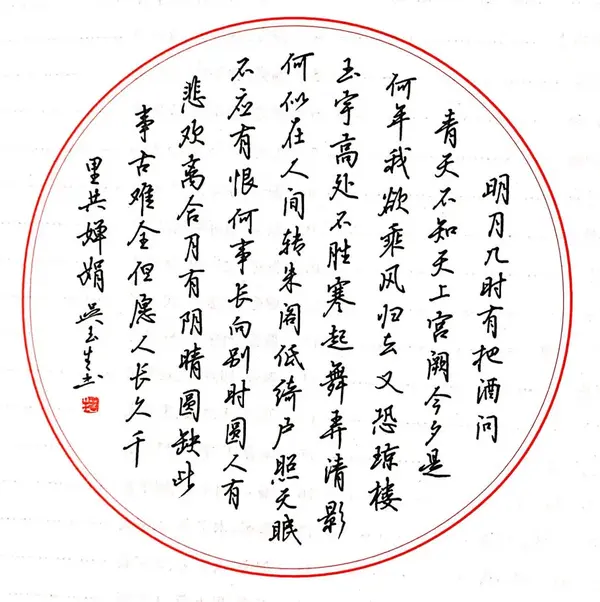 明月几时有把酒问
青天不知天上宫阙今夕是
何年我欲乘风归去又恐琼楼
玉宇高处不胜寒起舞弄清影
何似在人间转朱阁低绮户照无眠
不应有恨何事长向别时圆人有
悲欢离合月有阴晴圆缺此
事古难全但愿人长久千
里共婵娟 吴玉生书